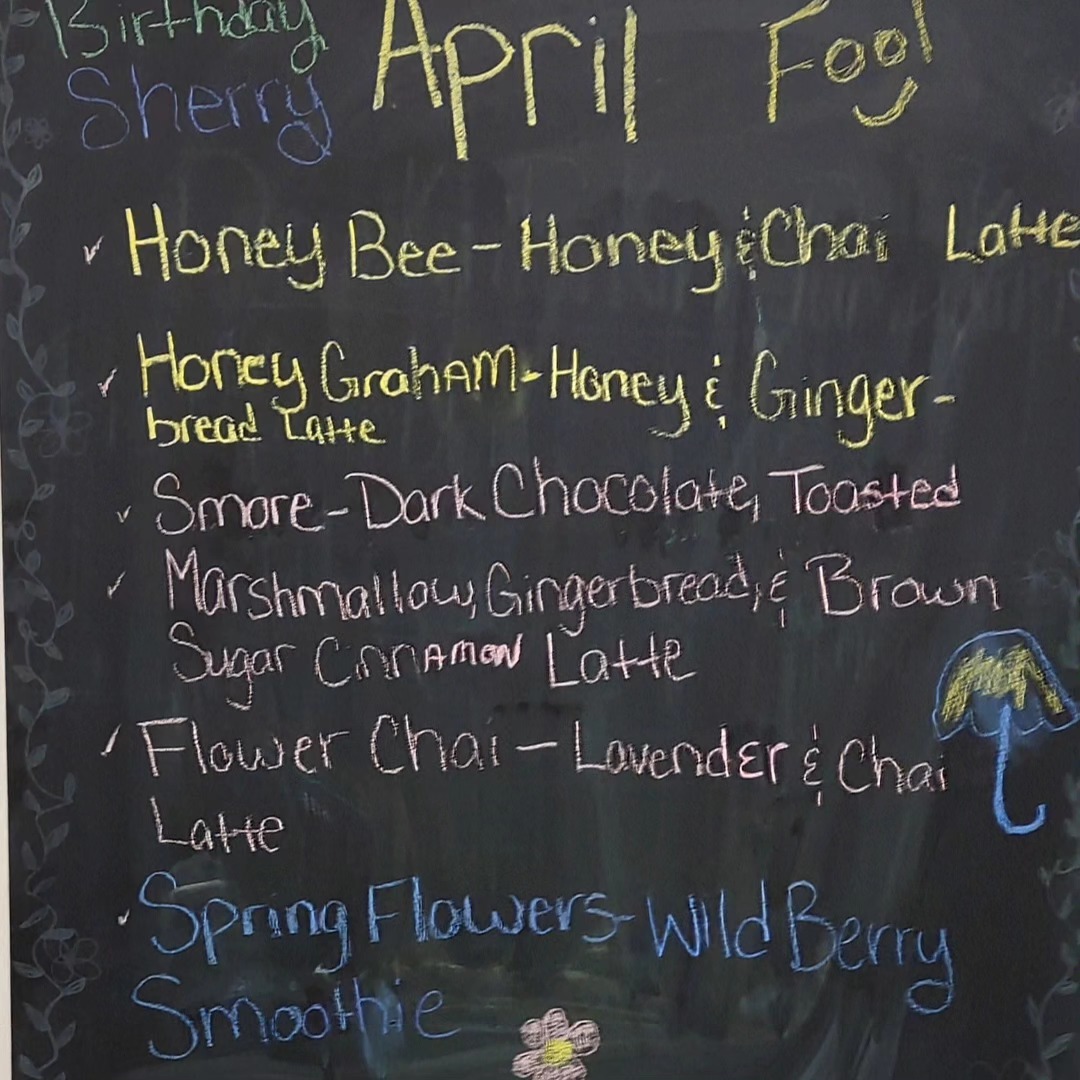 Birthday
Sherry
April Fool
Honey Bee - Honey & Chai Latte
Honey Graham - Honey & Ginger-
bread Latte
Smore - Dark Chocolate, Toasted
Marshmallow, Gingerbread, & Brown
Sugar Cinnamon Latte
Flower Chai - Lavender & Chai
Latte
Spring Flowers - Wild Berry
Smoothie